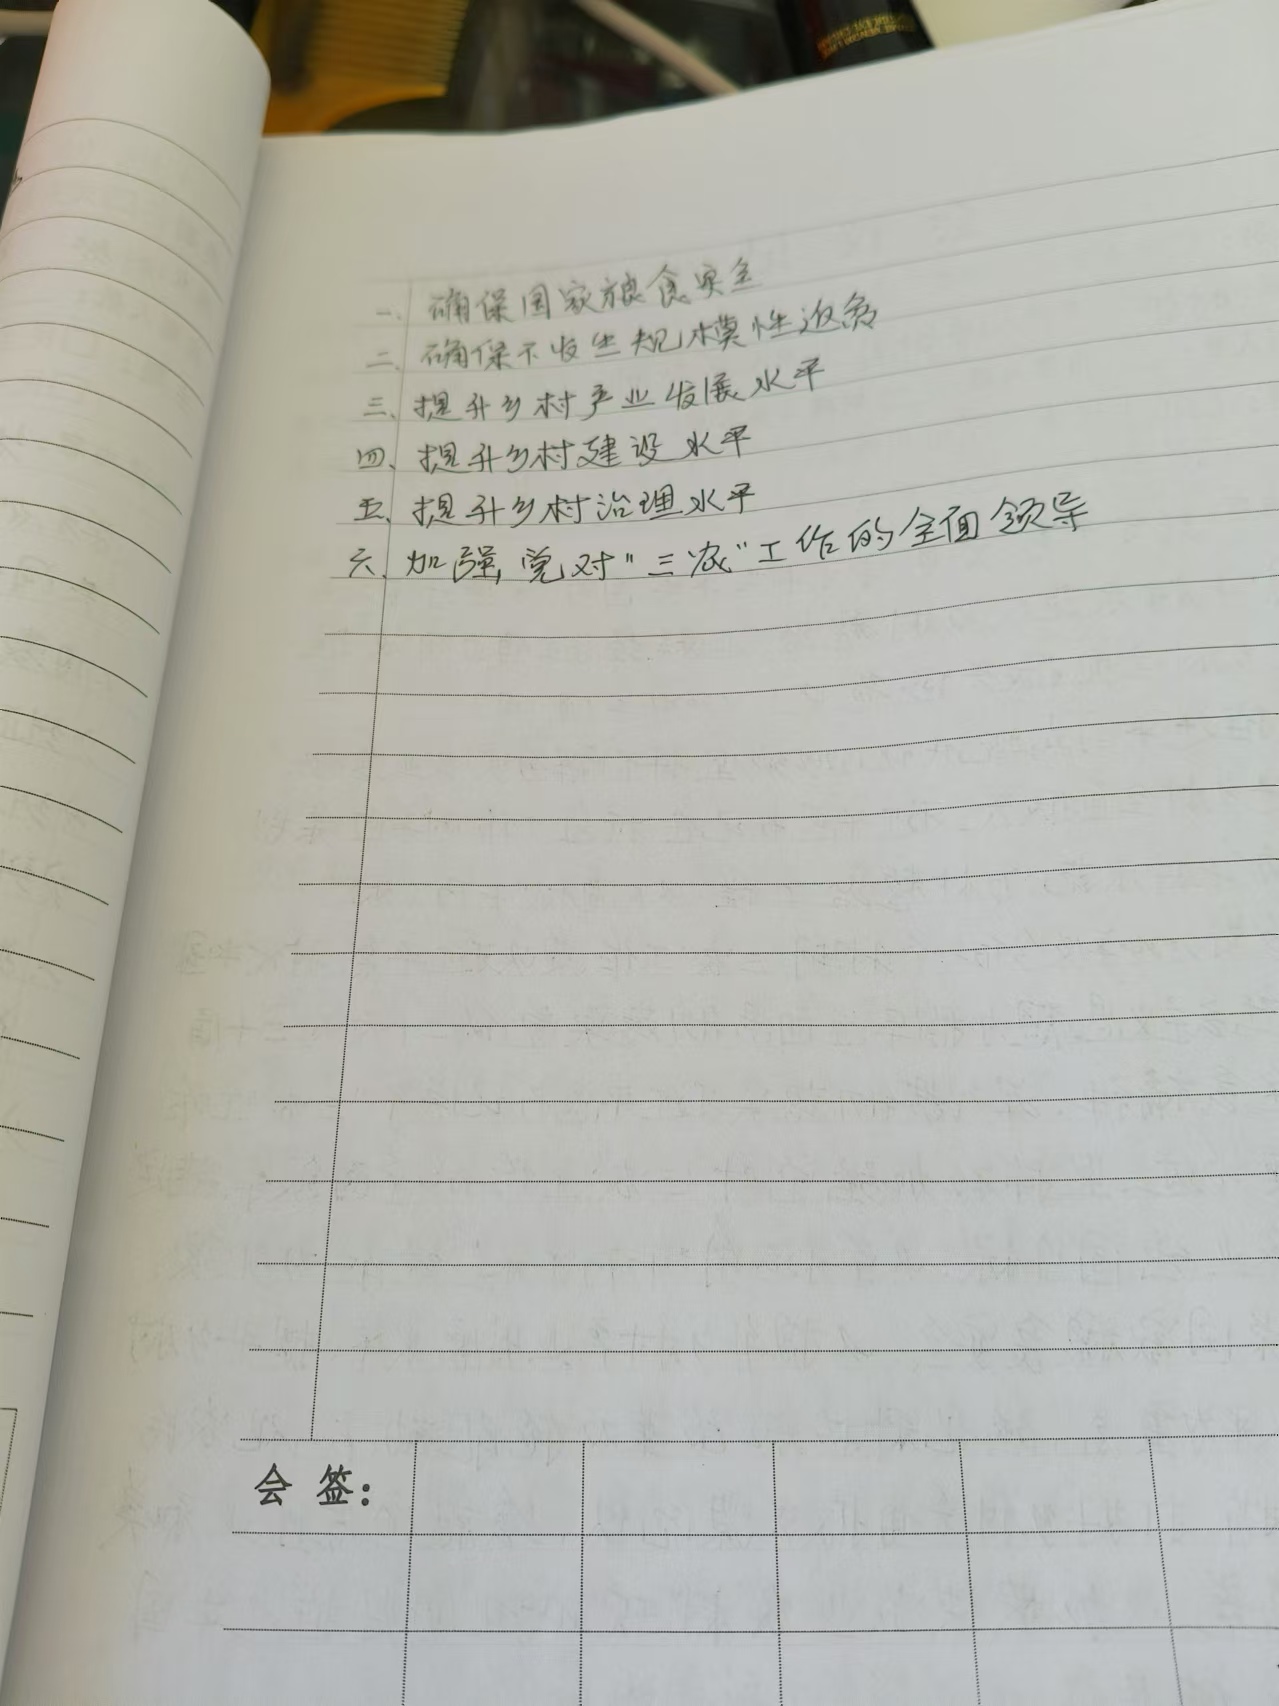 一、确保国家粮食安全
二、确保不发生规模性返贫
三、提升乡村产业发展水平
四、提升乡村建设水平
五、提升乡村治理水平
六、加强党对"三农"工作的全面领导
会签：